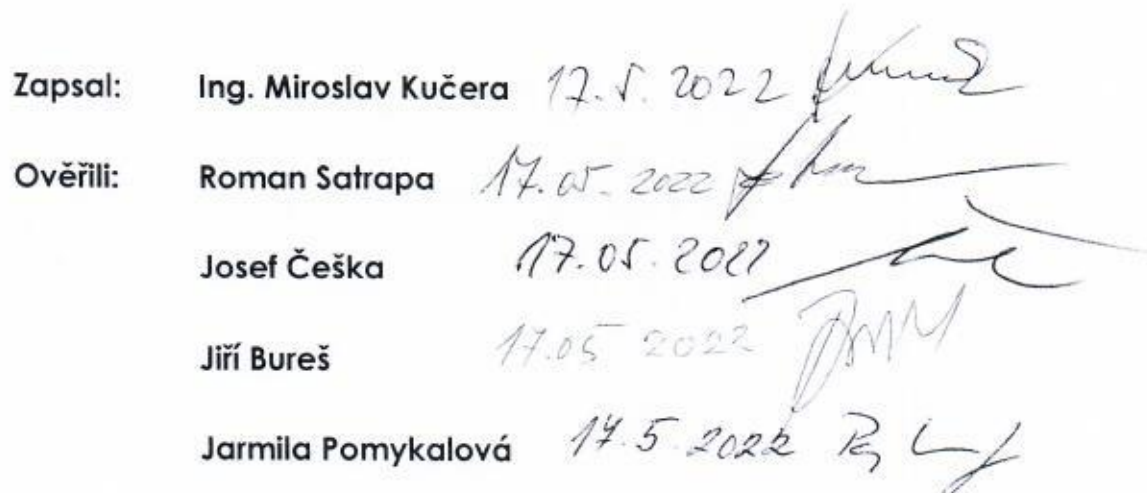 Zapsal: Ing. Miroslav Kučera 17.5.2022
Ověřili: Roman Satrapa 17.05.2022
Josef Češka 17.05.2022
Jiří Bureš 17.05 2022
Jarmila Pomykalová 17.5.2022